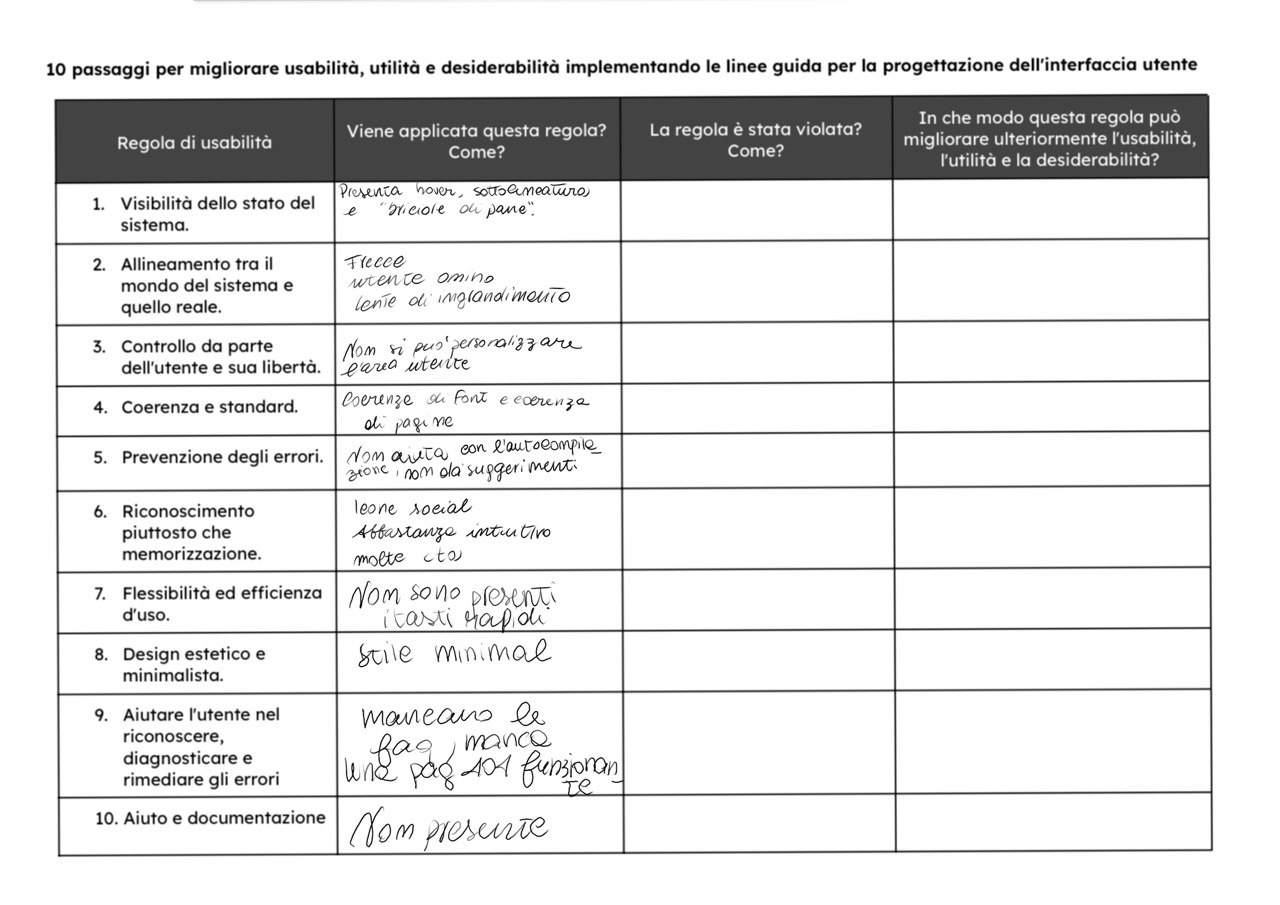 10 passaggi per migliorare usabilità, utilità e desiderabilità implementando le linee guida per la progettazione dell'interfaccia utente
Regola di usabilità
Viene applicata questa regola?
Come?
La regola è stata violata?
Come?
In che modo questa regola può
migliorare ulteriormente l'usabilità,
l'utilità e la desiderabilità?
1. Visibilità dello stato del
sistema.
Presenta hover, sottolineatura
e "briciole di pane".
2. Allineamento tra il
mondo del sistema e
quello reale.
Frecce
utente omino
lente di ingrandimento
3. Controllo da parte
dell'utente e sua libertà.
Non si puo' personalizzare
l'area utente
4. Coerenza e standard.
Coerenza di font e coerenza
di pagine
5. Prevenzione degli errori.
Non aiuta con l'autocompila
zione, non da suggerimenti
6. Riconoscimento
piuttosto che
memorizzazione.
Icone social
Abbastanza intuitivo
molte cta
7. Flessibilità ed efficienza
d'uso.
Non sono presenti
i tasti rapidi
8. Design estetico e
minimalista.
Stile minimal
9. Aiutare l'utente nel
riconoscere,
diagnosticare e
rimediare gli errori
mancano le
faq, manca
una pag 404 funzionan-
te
10. Aiuto e documentazione
Non presente